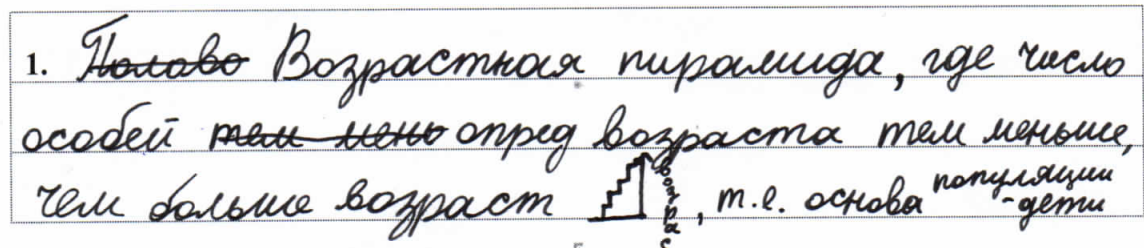 1. Полово Возрастная пирамида, где число
особей тем мень опред возраста тем меньше,
чем больше возраст возрас, т.е. основа популяции - дети